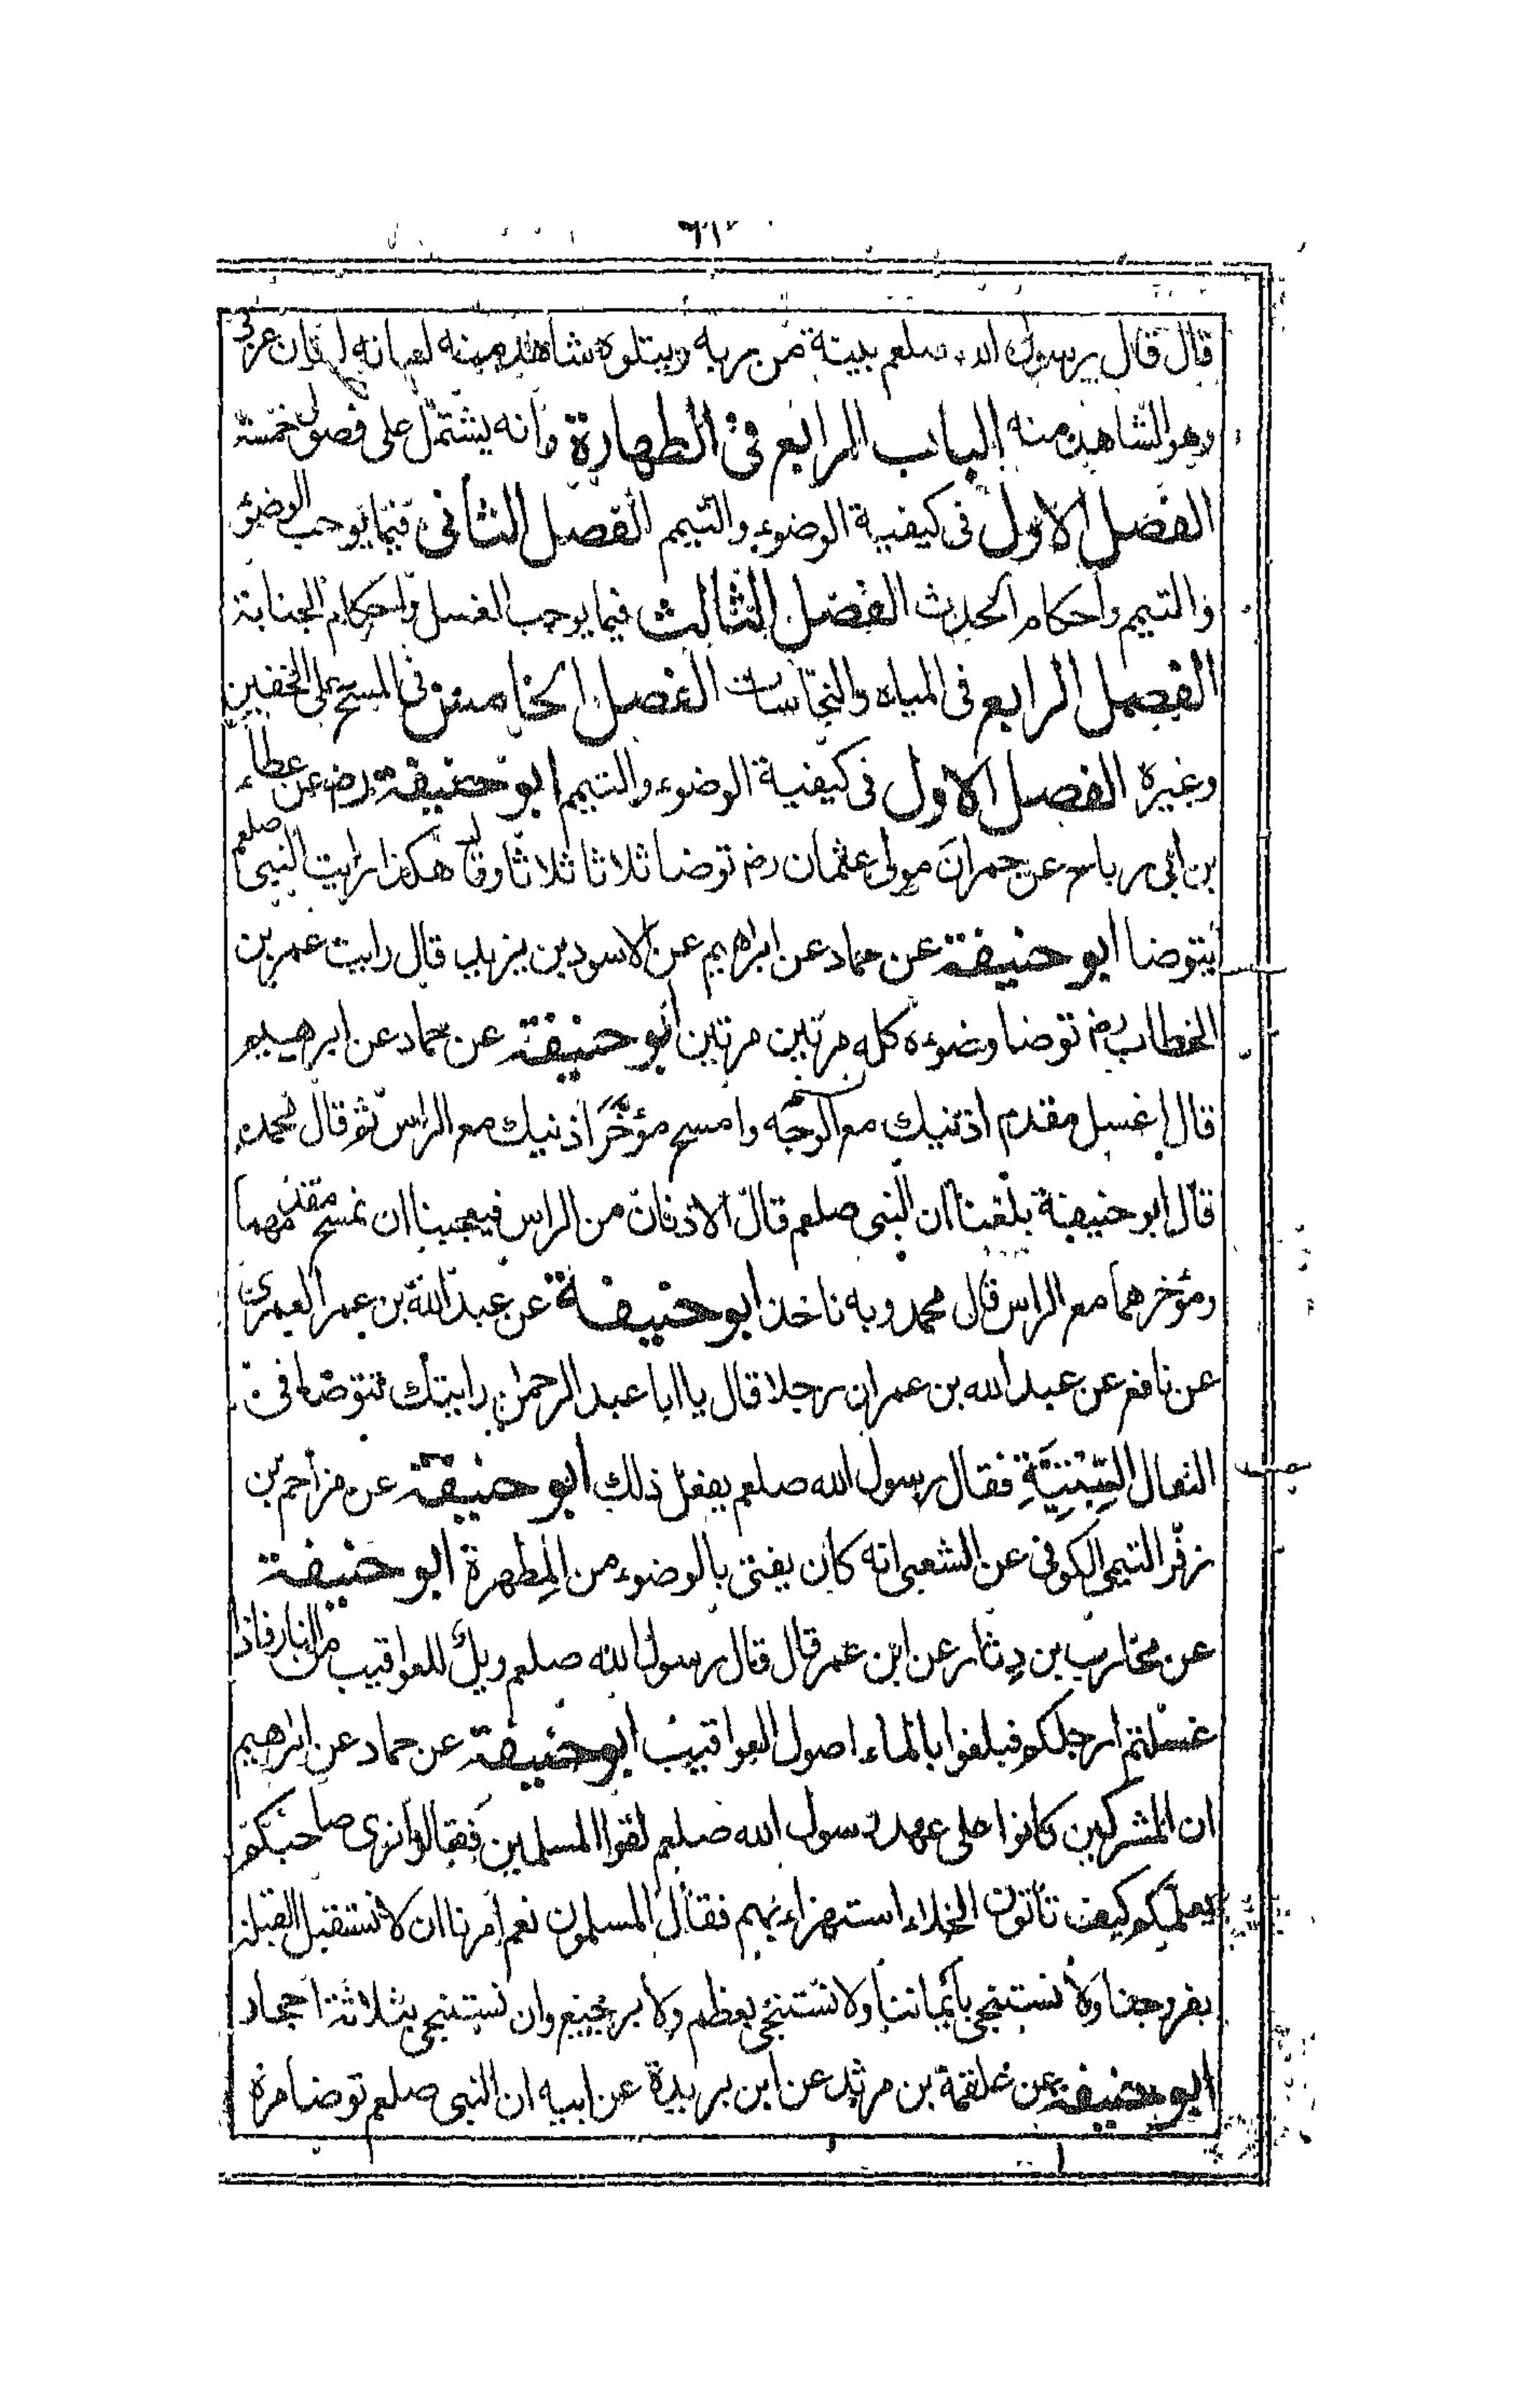 قال قال رسول الله صلعم بينة من ربه ويتلوه شاهد منه لسانه لسان عربى
وهو الشاهد منه الباب الرابع فى الطهارة وانه يشتمل على فصول خمسة
الفصل الاول فى كيفية الوضوء والتيمم الفصل الثانى فيما يوجب الوضوء
والتيمم واحكام الحدث الفصل الثالث فيما يوجب الغسل واحكام الجنابة
الفصل الرابع فى المياه والنجاسات الفصل الخامس فى المسح على الخفين
وغيره الفصل الاول فى كيفية الوضوء والتيمم ابو حنيفة رضـ عن عطاء
بن ابى رباح عن حمران مولى عثمان رضـ توضا ثلاثا ثلاثا وقال هكذا رايت النبى صلعم
يتوضا ابو حنيفة عن حماد عن ابراهيم عن الاسود بن يزيد قال رايت عمر بن
الخطاب رضـ توضا وضوءه كله مرتين مرتين ابو حنيفة عن حماد عن ابرهيم
قال اغسل مقدم اذنيك مع الوجه وامسح مؤخر اذنيك مع الراس ثم قال محمد
قال ابو حنيفة بلغنا ان النبى صلعم قال الاذنان من الراس فيعجبنا ان نمسح مقدمهما
ومؤخرهما مع الراس قال محمد وبه ناخذ ابو حنيفة عن عبد الله بن عمر العمرى
عن نافع عن عبد الله بن عمر ان رجلا قال يا ابا عبد الرحمن رايتك تتوضا فى
النعال السِّبْتِيَّةِ فقال رسول الله صلعم يفعل ذلك ابو حنيفة عن مزاحم بن
زفر التيمى الكوفى عن الشعبى انه كان يفتى بالوضوء من المِطهرة ابو حنيفة
عن محارب بن دِثار عن ابن عمر قال قال رسول الله صلعم ويلٌ للعواقيب من النار فاذا
غسلتم ارجلكم فبلغوا بالماء اصول العواقيب ابو حنيفة عن حماد عن ابرهيم
ان المشركين كانوا على عهد رسول الله صلعم لقوا المسلمين فقالوا نرى صاحبكم
يعلمكم كيف تأتون الخلاء استهزاء بهم فقال المسلمون نعم امرنا ان لا نستقبل القبلة
بفروجنا ولا نستنجى بأيماننا ولا نستنجى بعظم ولا برجيع وان نستنجى بثلاثة احجار
ابو حنيفة عن علقمة بن مرثد عن ابن بريدة عن ابيه ان النبى صلعم توضا مرة